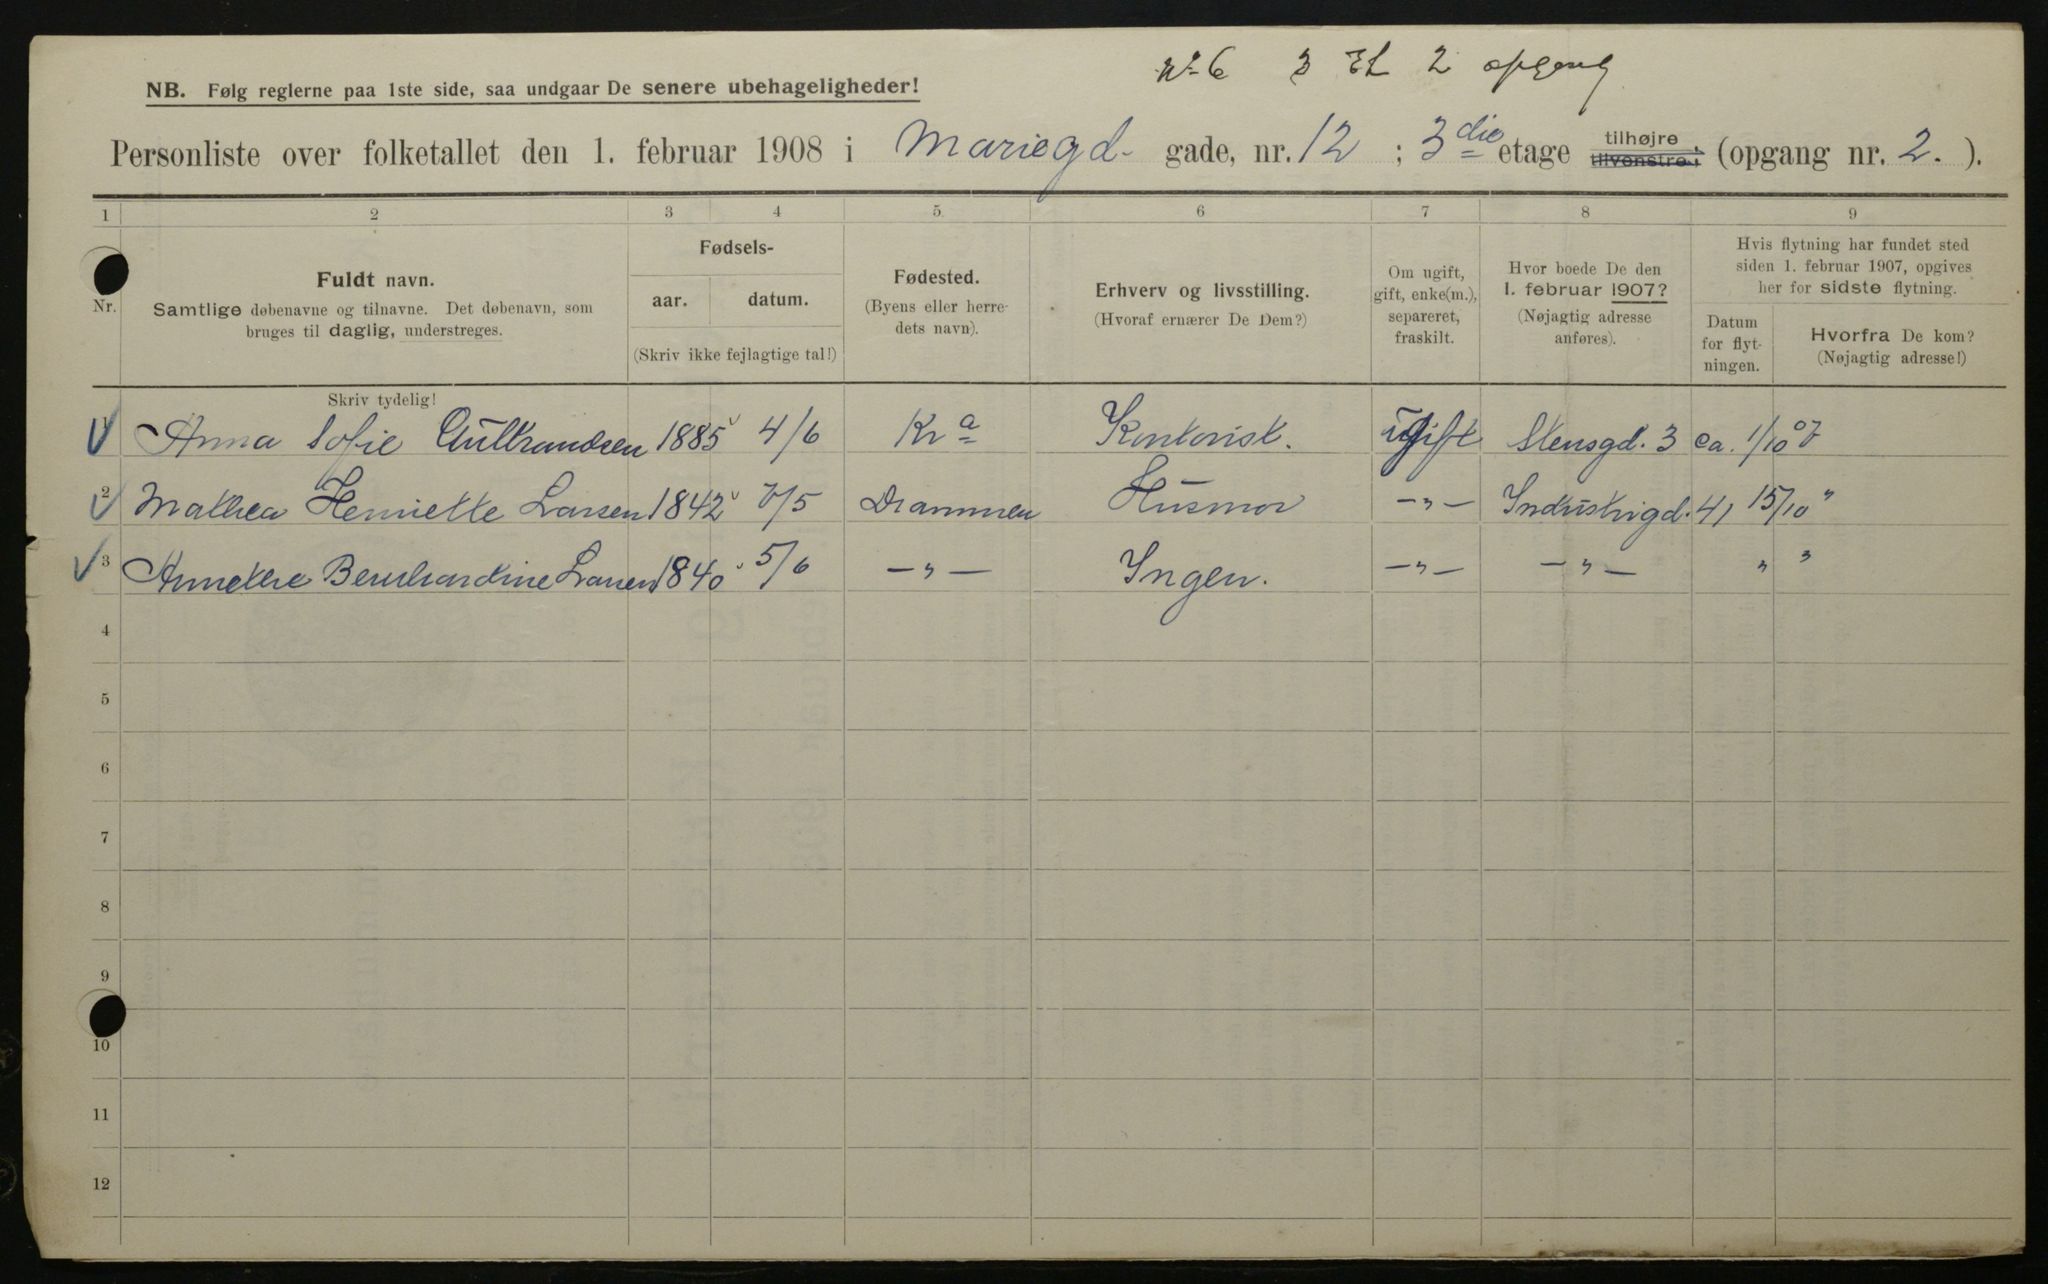 No 6 3 Et 2 opgang
NB. Følg reglerne paa 1ste side, saa undgaar De senere ubehageligheder!
Personliste over folketallet den 1. februar 1908 i Mariegd. gade, nr. 12 ; 3die etage tilhøjre tilvenstre, (opgang nr. 2. ).
1 2 3 4 5 6 7 8 9
Nr.
Fuldt navn.
Samtlige døbenavne og tilnavne. Det døbenavn, som
bruges til daglig, understreges.
Fødsels-
aar. datum.
(Skriv ikke fejlagtige tal!)
Fødested.
(Byens eller herre-
dets navn).
Erhverv og livsstilling.
(Hvoraf ernærer De Dem?)
Om ugift,
gift, enke(m.),
separeret,
fraskilt.
Hvor boede De den
1. februar 1907?
(Nøjagtig adresse
anføres).
Hvis flytning har fundet sted
siden 1. februar 1907, opgives
her for sidste flytning.
Datum
for flyt-
ningen.
Hvorfra De kom?
(Nøjagtig adresse!)
Skriv tydelig!
1 Anna Sofie Gulbrandsen 1885 4/6 Kra Kontorist. Ugift Stensgd. 3 ca. 1/10 07
2 Mathea Henriette Larsen 1842 7/5 Drammen Husmor —„— Industrigd. 41 15/10 "
3 Annethe Bernhardine Larsen 1840 5/6 —„— Ingen. —„— —„— " "
4
5
6
7
8
9
10
11
12